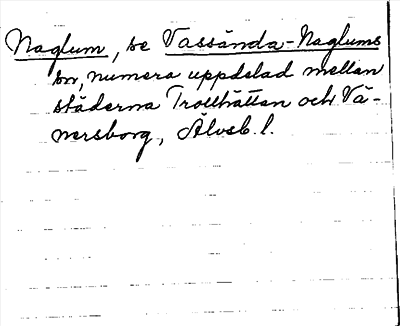 Naglum, se Vassända-Naglums
sn, numera uppdelad mellan
städerna Trollhättan och Vä-
nersborg, Älvsb. l.